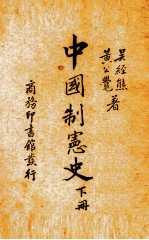 吴經熊
黃公覺 著
中國制憲史 下冊
商務印書館發行